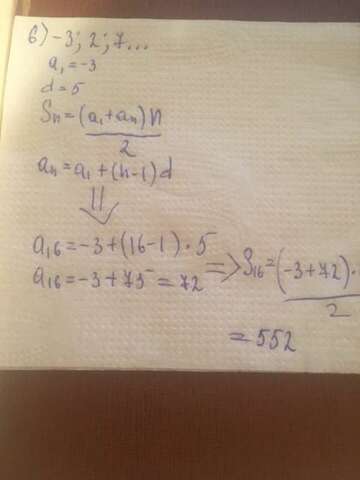 б) -3; 2; 7...
a₁=-3
d=5
Sₙ=(a₁+aₙ)n/2
aₙ=a₁+(n-1)d
⇓
a₁₆=-3+(16-1)·5
a₁₆=-3+75=72 => S₁₆=(-3+72)·/2
=552